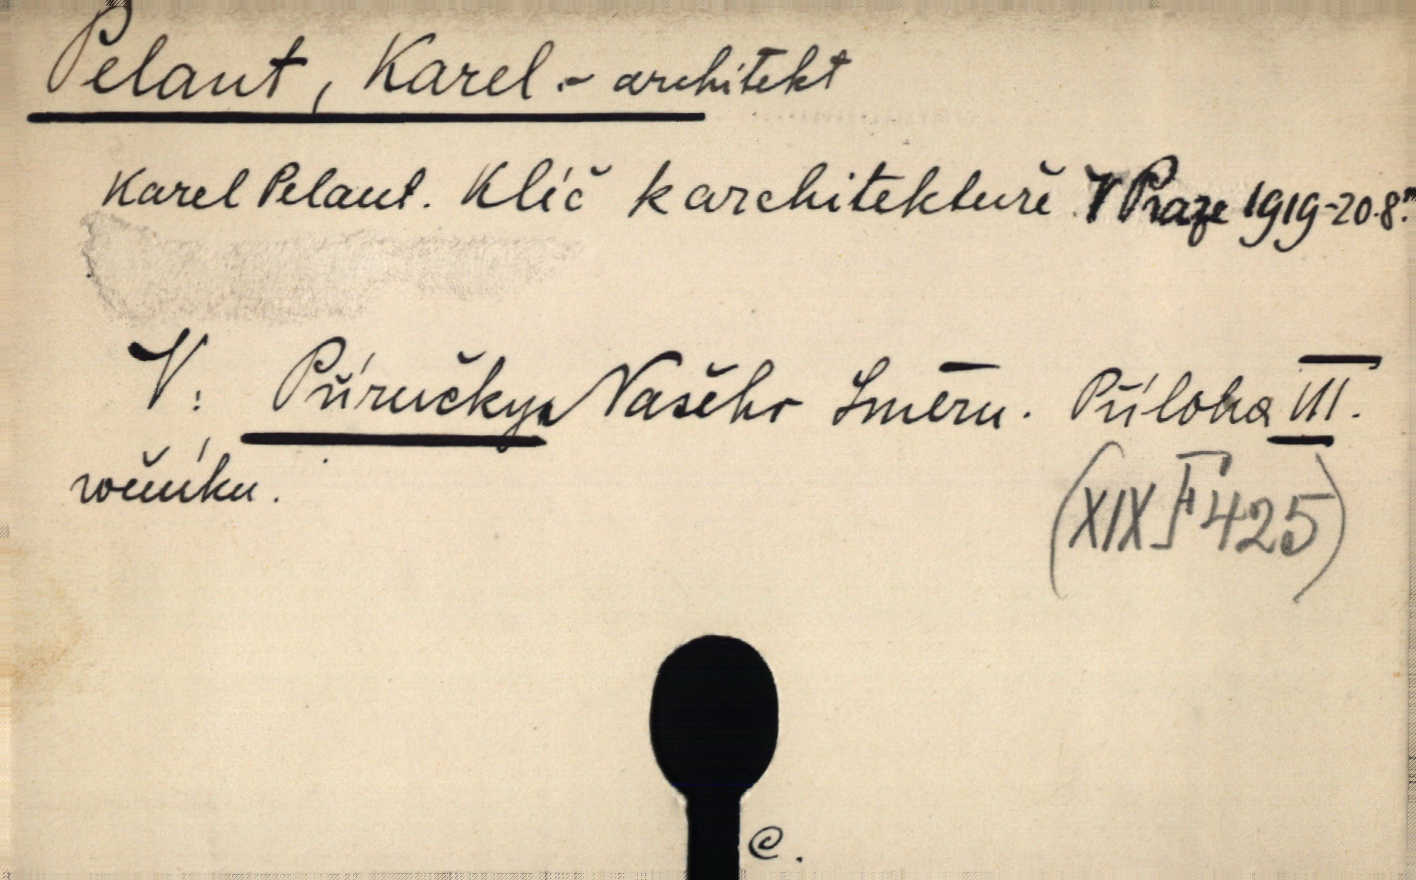 Pelant, Karel. - architekt
Karel Pelant. Klíč k architektuře. V Praze 1919-20. 8.°
V: Příručky Našeho Směru. Příloha III.
ročníku.
(XIX F 425)
C.